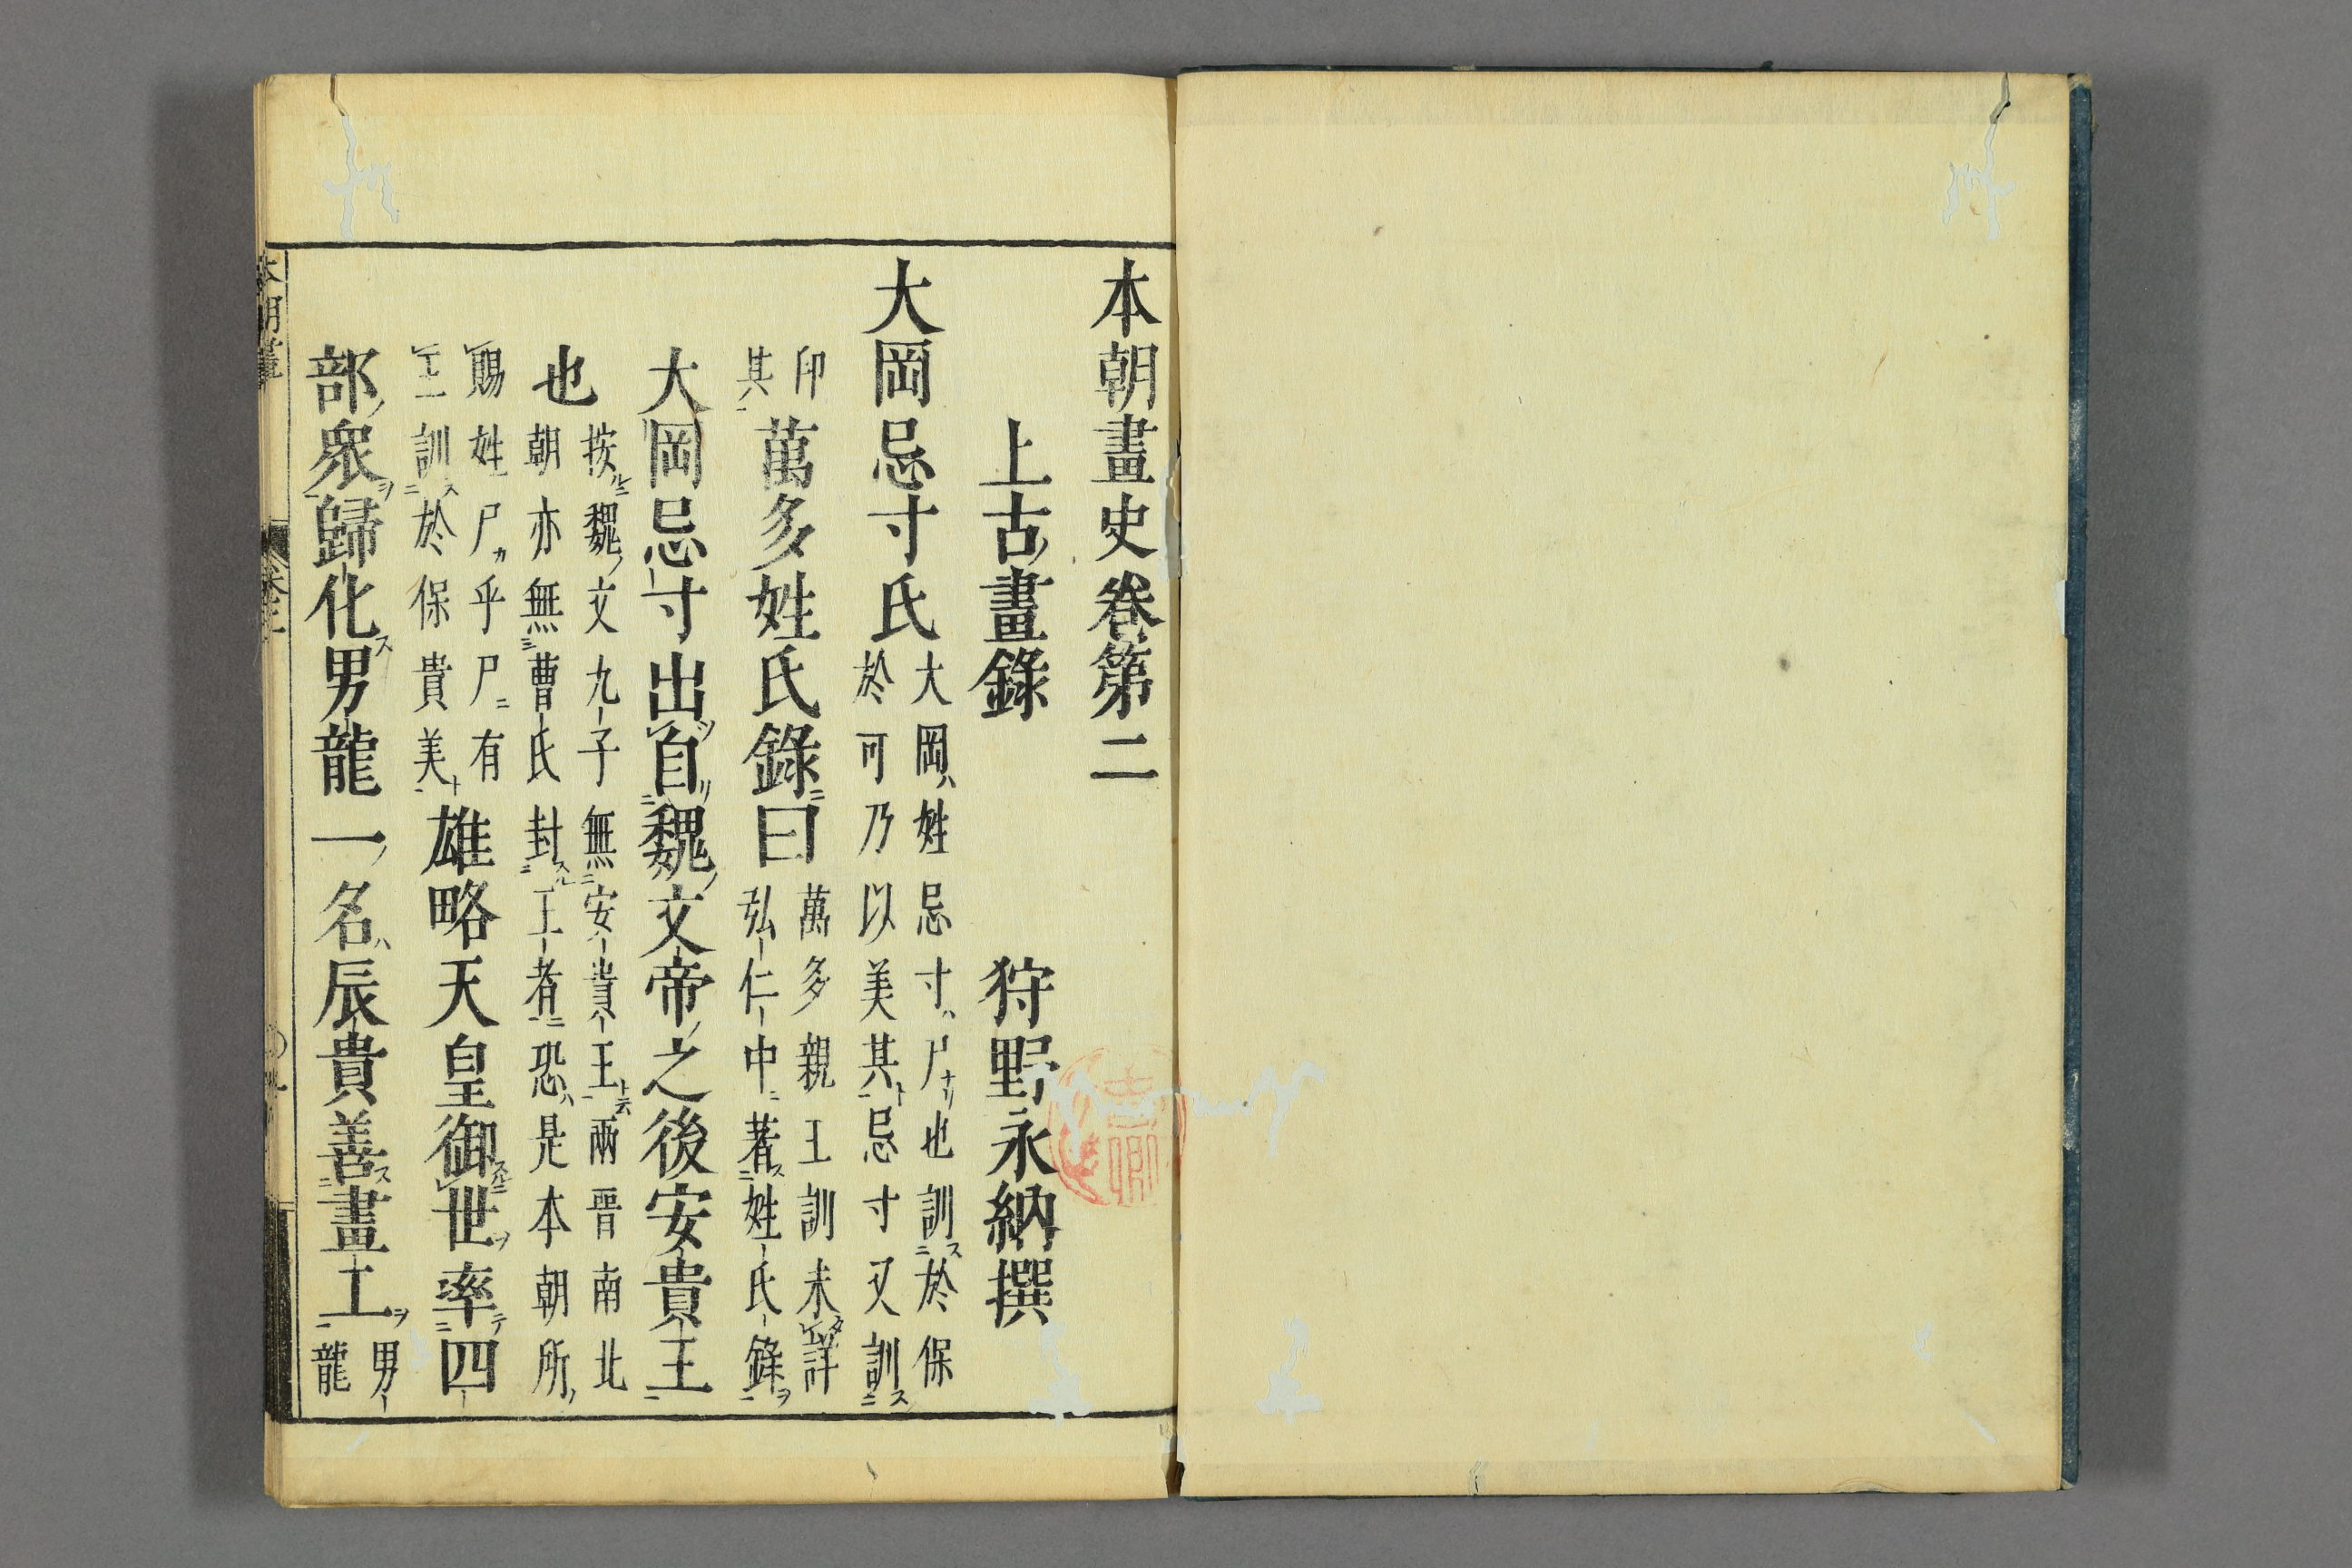 本朝畫史卷第二
上古畫錄 狩野永納撰
大岡忌寸氏 大岡ハ姓忌寸ハ尸ナリ也訓スニ於保
於可乃以美其ト忌寸又訓スニ
印
其
萬多姓氏錄ニ曰 萬多親王訓未タレ詳
弘仁中ニ著ス姓氏錄ヲ
大岡忌寸出自魏ノ文帝ノ之後安貴王
也 按ルニ魏ノ文九子無安貴王ト云兩晉南北
朝亦無曹氏封スル王者恐ハ是本朝所ノ
賜姓尸カ乎尸ニ有
王訓ス於保貴美ト
雄略天皇御世ヲ率テ四
部ノ衆ヲ歸化ス男龍一ノ名ハ辰貴善ス畫工ヲ 男
龍